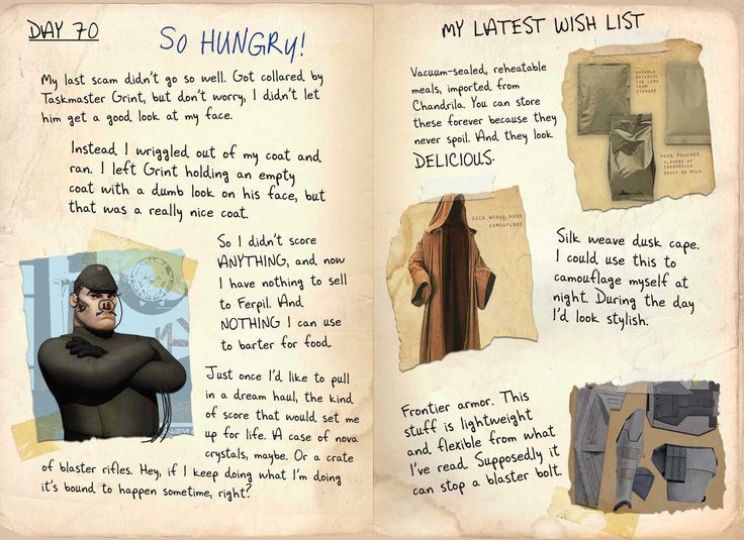 DAY 70
SO HUNGRY!
My last scam didn't go so well. Got collared by
Taskmaster Grint, but don't worry, I didn't let
him get a good look at my face.
Instead I wriggled out of my coat and
ran. I left Grint holding an empty
coat with a dumb look on his face, but
that was a really nice coat.
So I didn't score
ANYTHING, and now
I have nothing to sell
to Ferpil. And
NOTHING I can use
to barter for food.
Just once I'd like to pull
in a dream haul, the kind
of score that would set me
up for life. A case of nova
crystals, maybe. Or a crate
of blaster rifles. Hey, if I keep doing what I'm doing
it's bound to happen sometime, right?
MY LATEST WISH LIST
Vacuum-sealed, reheatable
meals, imported from
Chandrila. You can store
these forever because they
never spoil. And they look
DELICIOUS.
DURABLE
MATERIAL
FOR LONG
TERM
STORAGE
FOOD POUCHES
SILK WEAVE DUSK
CAMOUFLAGE
Silk weave dusk cape.
I could use this to
camouflage myself at
night. During the day
I'd look stylish.
Frontier armor. This
stuff is lightweight
and flexible from what
I've read. Supposedly it
can stop a blaster bolt.